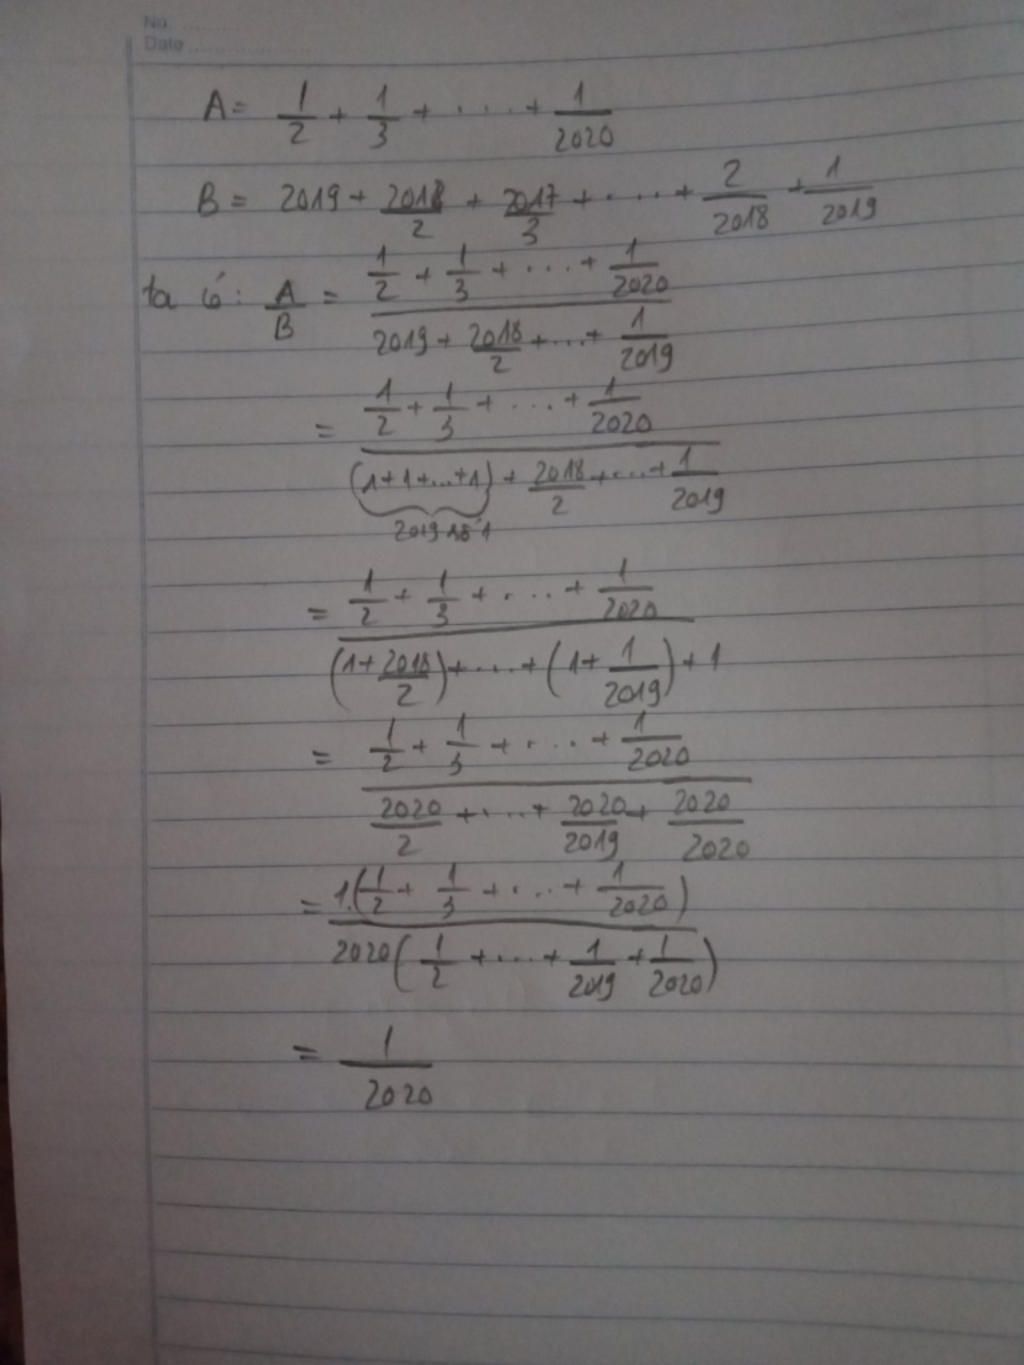 No. ..........
Date ....................
A = 1/2 + 1/3 + .... + 1/2020
B = 2019 + 2018/2 + 2017/3 + ..... + 2/2018 + 1/2019
ta có : A/B = (1/2 + 1/3 + ... + 1/2020)/(2019 + 2018/2 + ... + 1/2019)
= (1/2 + 1/3 + .... + 1/2020)/((1+1+...+1) + 2018/2 + .... + 1/2019)
2019 số 1
= (1/2 + 1/3 + .... + 1/2020)/((1 + 2018/2) + .... + (1 + 1/2019) + 1)
= (1/2 + 1/3 + .... + 1/2020)/(2020/2 + .... + 2020/2019 + 2020/2020)
= 1.(1/2 + 1/3 + .... + 1/2020)/2020(1/2 + ... + 1/2019 + 1/2020)
= 1/2020